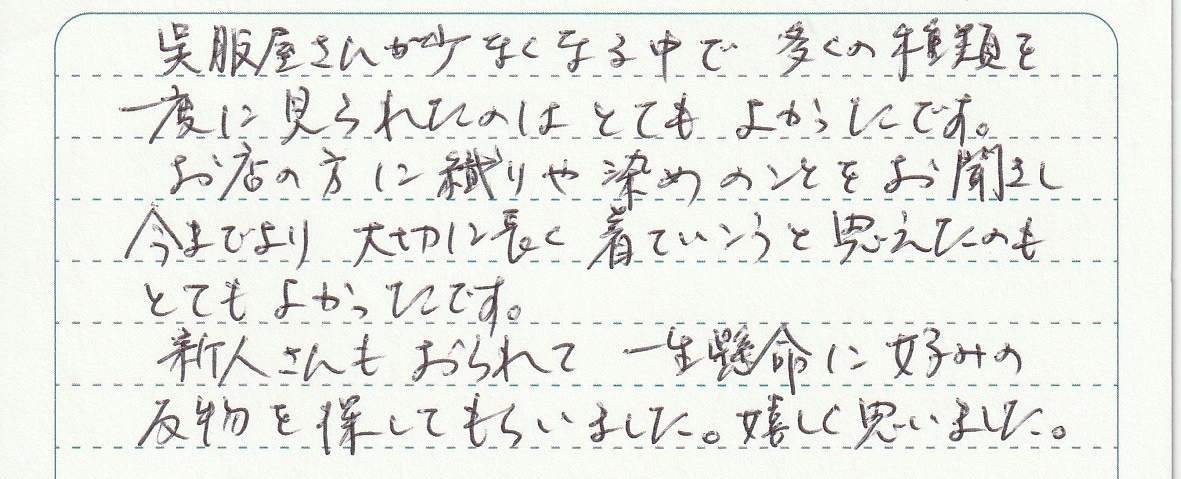 呉服屋さんが少なくなる中で 多くの種類を
一度に見られたのはとてもよかったです。
お店の方に織りや染めのことをお聞きし
今までより 大切に長く着ていこうと思えたのも
とてもよかったです。
新人さんもおられて 一生懸命に好みの
反物を探してもらいました。嬉しく思いました。